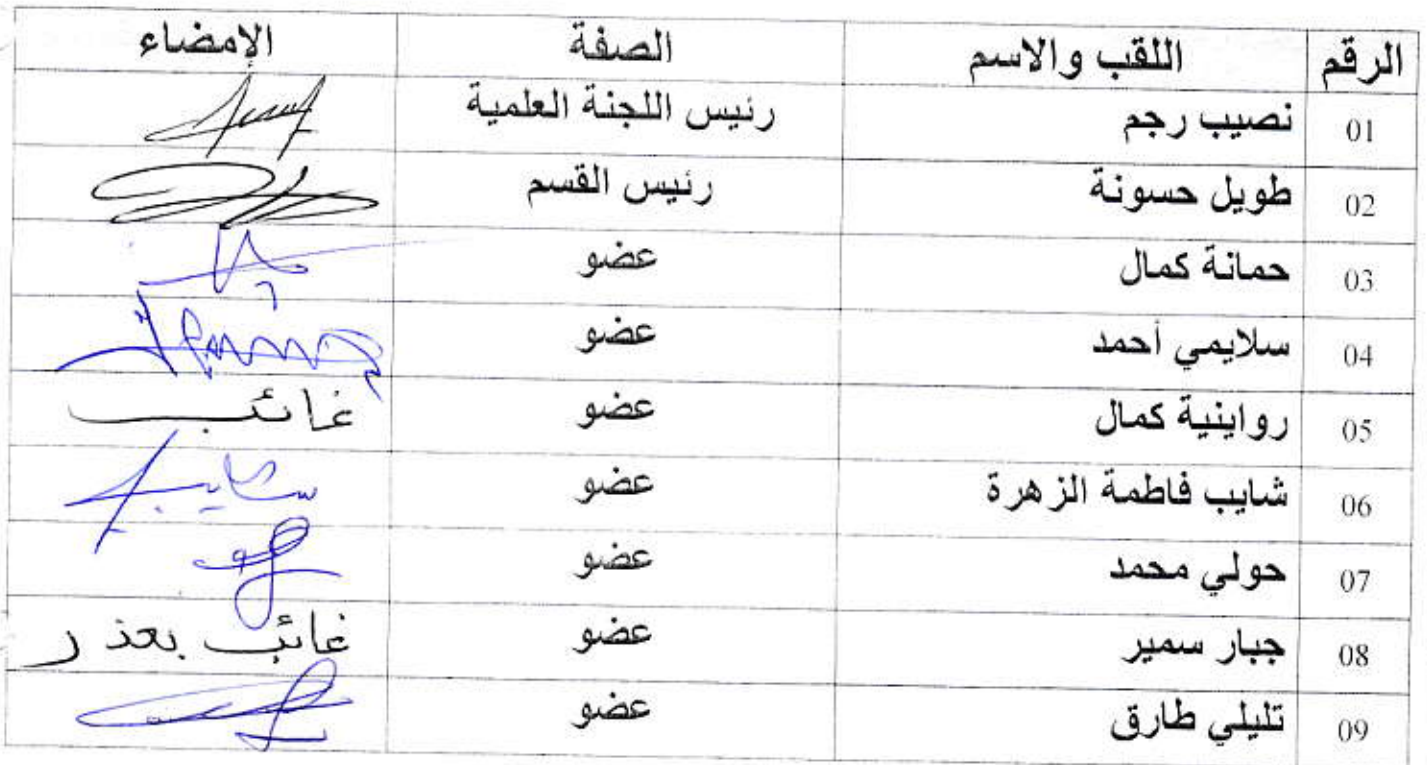 الرقم اللقب والاسم الصفة الإمضاء
01 نصيب رجم رئيس اللجنة العلمية
02 طويل حسونة رئيس القسم
03 حمانة كمال عضو
04 سلايمي أحمد عضو
05 رواينية كمال عضو غائب
06 شايب فاطمة الزهرة عضو
07 حولي محمد عضو
08 جبار سمير عضو غائب بعذر
09 تليلي طارق عضو